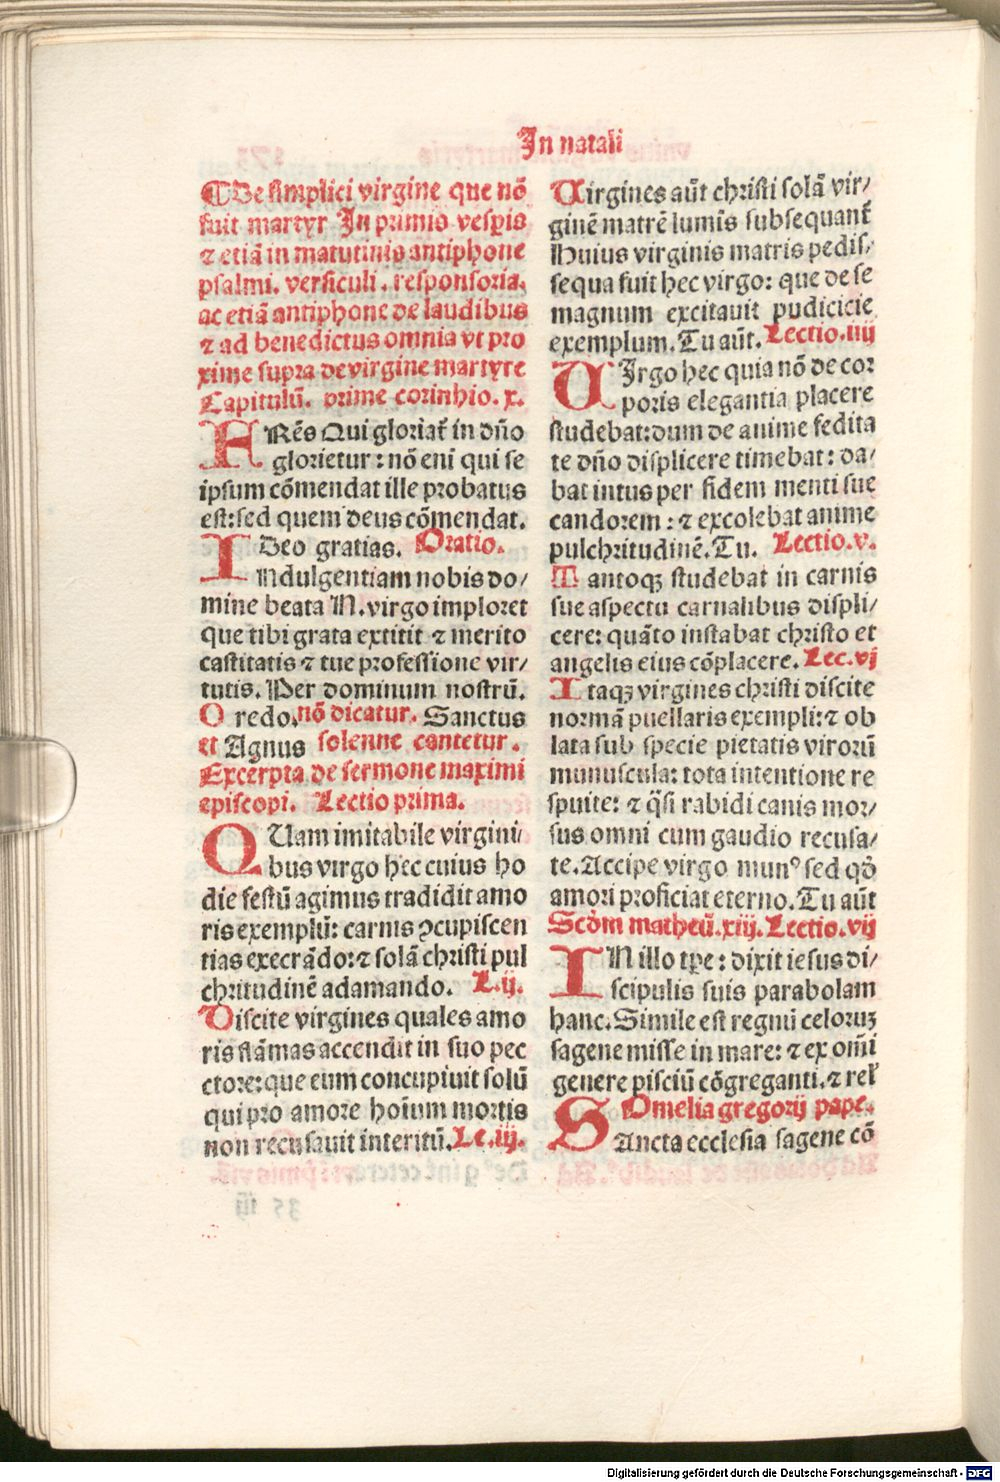 In natali
¶De simplici virgine que nō
fuit martyr In primio vesꝑis
⁊ etiā in matutinis antiphone
psalmi. versiculi. responsoria.
ac etiā antiphone de laudibus
⁊ ad benedictus omnia vt pro
xime supra de virgine martyre
Capitulū. prime corinhio. x.
FRēs Qui gloriat̄ in dño
glorietur: nō eni qui se
ipsum cōmendat ille probatus
est: sed quem deus cōmendat.
Deo gratias. Oratio.
INdulgentiam nobis do/
mine beata N. virgo imploret
que tibi grata extitit ⁊ merito
castitatis ⁊ tue professione vir/
tutis. Per dominum nostrū.
C redo. nō dicatur. Sanctus
et Agnus solenne cantetur.
Excerpta de sermone maximi
episcopi. Lectio prima.
QUam imitabile virgini
bus virgo hec cuius ho
die festū agimus tradidit amo
ris exemplū: carnis ꝯcupiscen
tias execrādo: ⁊ solā christi pul
chritudinē adamando. L.ij.
Discite virgines quales amo
ris flāmas accendit in suo pec
ctore: que eum concupiuit solū
qui pro amore hoīum mortis
non recusauit interitū. Le.iij.
Virgines aūt christi solā vir/
ginē matrē lumīs subsequant̄
Huius virginis matris pedis/
sequa fuit hec virgo: que de se
magnum excitauit pudicicie
exemplum. Tu aūt. Lectio.iiij
VIrgo hec quia nō de cor
poris elegantia placere
studebat: dum de anime fedita
te dño displicere timebat: da/
bat intus per fidem menti sue
candorem: ⁊ excolebat anime
pulchritudinē. Tu. Lectio.v.
Tantoqꝫ studebat in carnis
sue aspectu carnalibus displi/
cere: quāto instabat christo et
angelis eius cōplacere. Lec.vj
Itaqꝫ virgines christi discite
normā puellaris exempli: ⁊ ob
lata sub specie pietatis virorū
munuscula: tota intentione re
spuite: ⁊ q̄si rabidi canis mor/
sus omni cum gaudio recusa/
te. Accipe virgo munꝰ sed qď
amori proficiat eterno. Tu aūt
Scďm matheū.xiij. Lectio.vij
IN illo tꝑe: dixit iesus di/
scipulis suis parabolam
hanc. Simile est regnū celoruꝫ
sagene misse in mare: ⁊ ex om̄i
genere pisciū cōgreganti. ⁊ rel̄
Omelia gregorij pape.
SAncta ecclesia sagene cō
Digitalisierung gefördert durch die Deutsche Forschungsgemeinschaft - DFG